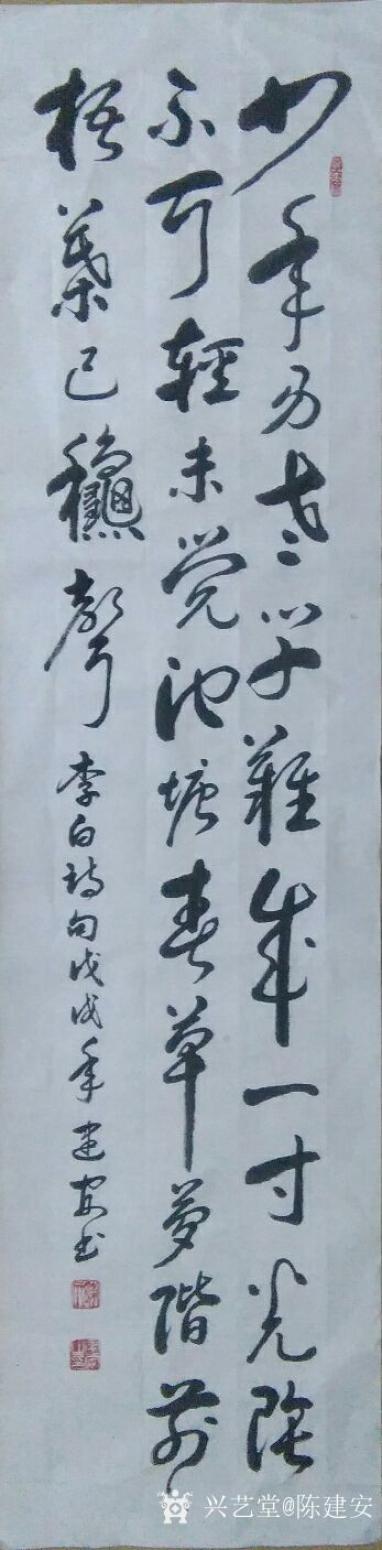 少年易老学難成一寸光陰
不可輕未覺池塘春草夢階前
梧葉已龝聲
李白詩句戊戌年建安书
兴艺堂@陈建安